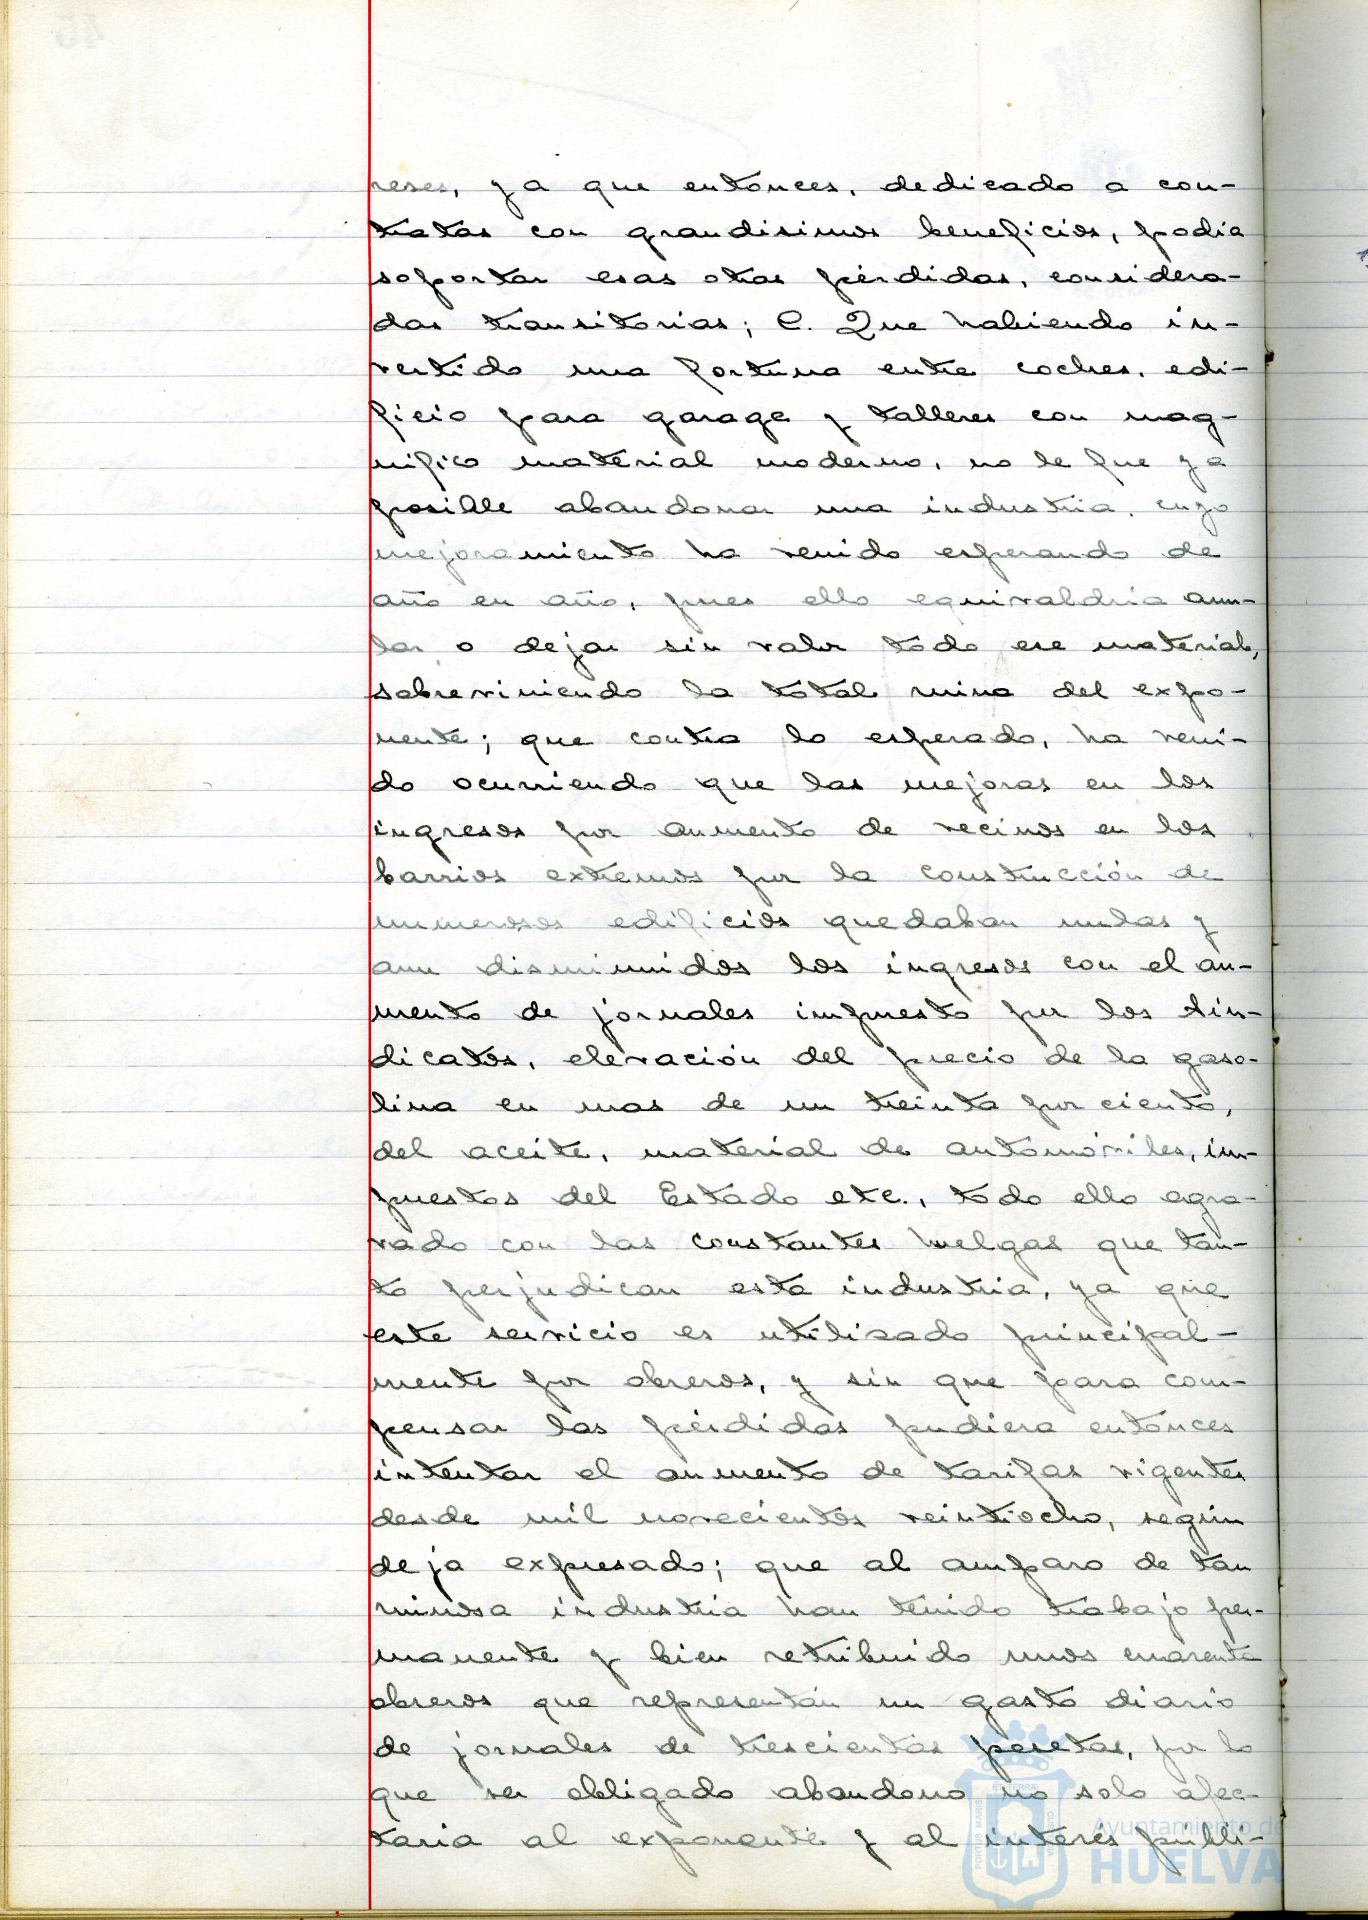 reses, ya que entonces, dedicado a con-
tratas con grandisimos beneficios, podia
soportar esas otras pérdidas, considera-
das transitorias; C. Que habiendo in-
vertido una fortuna entre coches, edi-
ficio para garage y talleres con mag-
nifico material moderno, no le fue ya
posible abandonar una industria, cuyo
mejoramiento ha venido esperando de
año en año, pues ello equivaldria anu-
lar o dejar sin valor todo ese material,
sobreviniendo la total ruina del expo-
nente; que contra lo esperado, ha veni-
do ocurriendo que las mejoras en los
ingresos por aumento de vecinos en los
barrios extremos por la construcción de
numerosos edificios quedaban nulas y
aun disminuidos los ingresos con el au-
mento de jornales impuesto por los Sin-
dicatos, elevación del precio de la gaso-
lina en mas de un treinta por ciento,
del aceite, material de automóviles, im-
puestos del Estado etc., todo ello agra-
vado con las constantes huelgas que tan-
to perjudican esta industria, ya que
este servicio es utilizado principal-
mente por obreros, y sin que para com-
pensar las pérdidas pudiera entonces
intentar el aumento de tarifas vigentes
desde mil novecientos veintiocho, según
deja expresado; que al amparo de tan
ruinosa industria han tenido trabajo per-
manente y bien retribuido unos cuarenta
obreros que representan un gasto diario
de jornales de trescientas pesetas, por lo
que ser obligado abandono no solo afec-
taria al exponente y al interés públi-
Ayuntamiento de
HUELVA